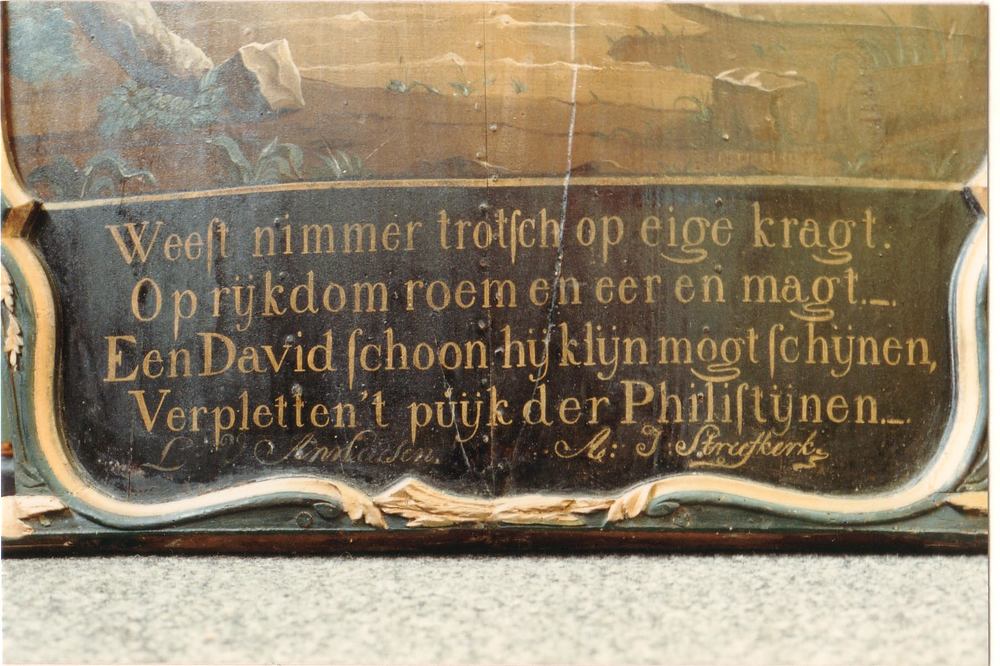 Weeſt nimmer trotſch op eige kragt.
Op rÿkdom roem en eer en magt._.
Een David ſchoon hÿ klÿn mogt ſchÿnen,
Verpletten't puÿk der Philiſtÿnen._.
L V A: J Streefkerk